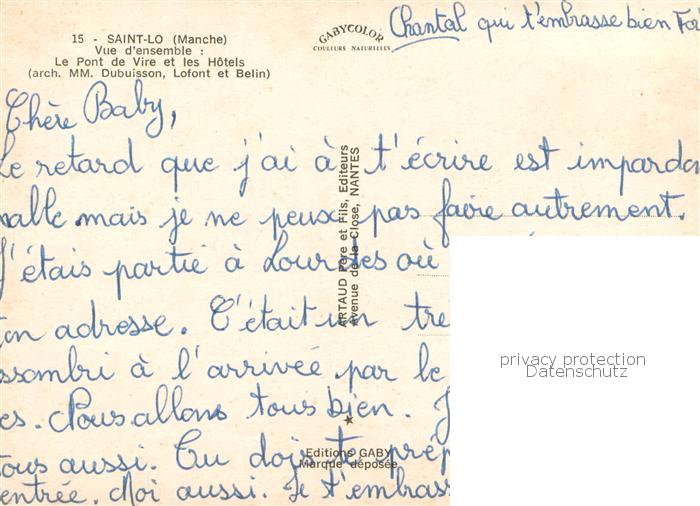 Chantal qui t'embrasse bien For
GABYCOLOR
COULEURS NATURELLES
15 - SAINT-LO (Manche)
Vue d'ensemble :
Le Pont de Vire et les Hôtels
(arch. MM. Dubuisson, Lofont et Belin)
Chère Baby,
Le retard que j'ai à t'écrire est impardon
nable mais je ne peux pas faire autrement.
J'étais partie à Lourdes où
ton adresse. C'était un trè
ssombri à l'arrivée par le
es. Nous allons tous bien. J
ous aussi. Tu dois te prép
entrée. Moi aussi. Je t'embrass
ARTAUD Père et Fils, Editeurs
Avenue de la Close, NANTES
Editions GABY
Marque déposée
privacy protection
Datenschutz